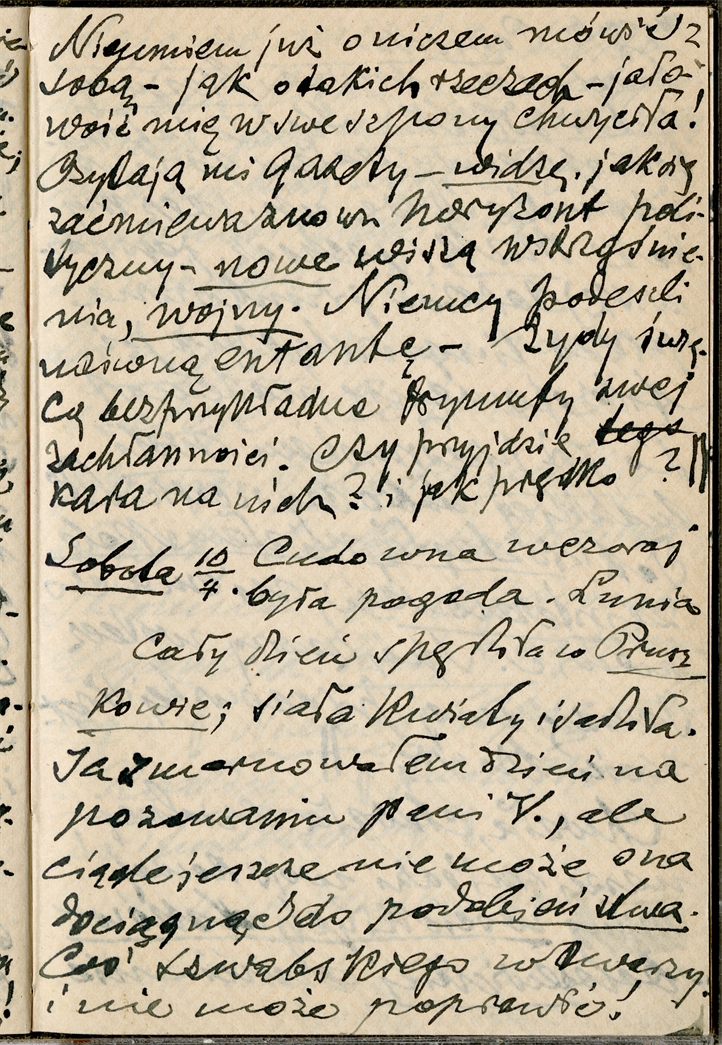 Nie umiem już o niczem mówić z
sobą – jak o takich rzeczach – jało-
wość mię w swe szpony chwyciła!
Czytają mi Gazety – widzę, jak się
zaćmiewa znowu horyzont poli-
tyczny – nowe wiszą wstrząśnie-
nia, wojny. Niemcy podeszli
uśpioną ententę – Żydy świę-
cą bezprzykładne tryumfy swej
zachłanności. Czy przyjdzie tego
kara na nich? i jak prędko ?
Sobota 10/4. Cudowna wczoraj
była pogoda. Lunia
cały dzień spędziła w Prusz
kowie; siała kwiaty i sadziła.
Ja zmarnowałem dzień na
pozowaniu pani V., ale
ciągle jeszcze nie może ona
dociągnąć do podobieństwa.
Coś szwabskiego w twarzy.
i nie może poprawić!